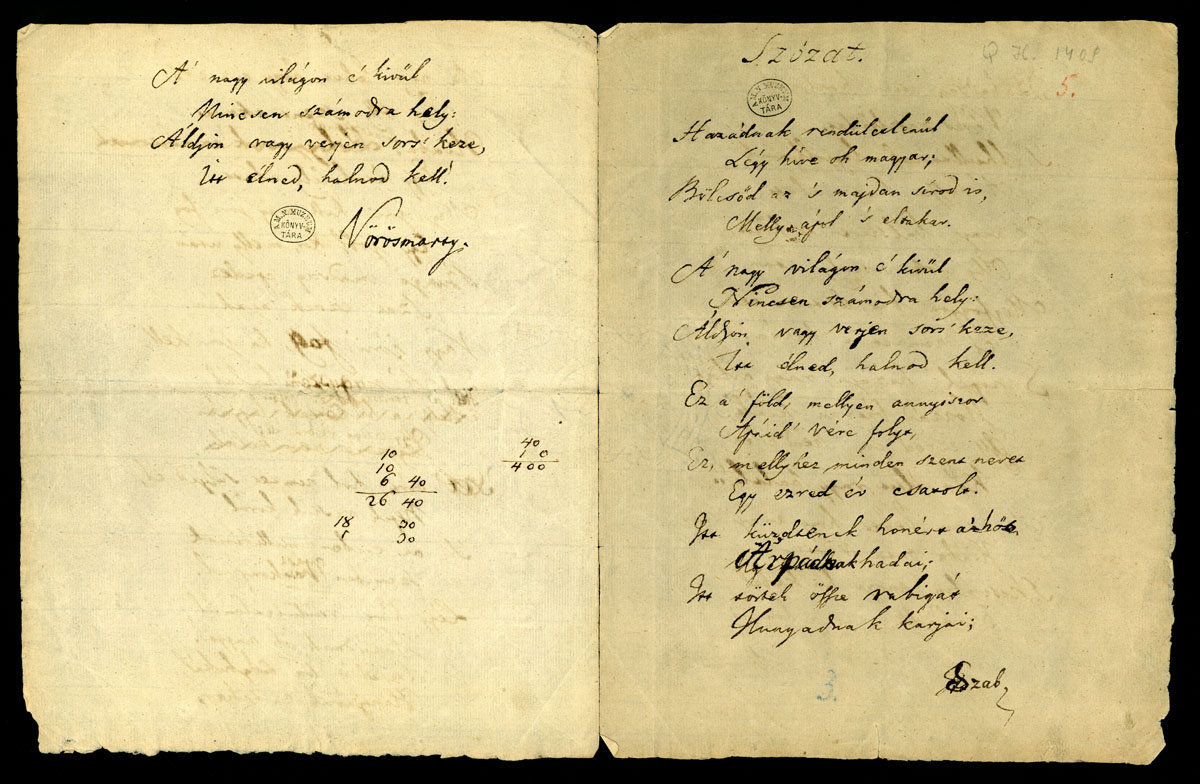 A' nagy világon é kivül
Nincsen számodra hely:
Áldjon vagy verjen sors' keze,
Itt élned, halnod kell!
A.M.N. MUZEUM KÖNYV-TÁRA
Vörösmarty.
10
10
6 40
26 40
18 30
30
40
10
400
Szózat.
Q H. 1409
5.
A.M.N. MUZEUM KÖNYV-TÁRA
Hazádnak rendületlenül
Légy híve oh magyar;
Bölcsőd az 's majdan sírod is,
Melly ápol 's eltakar.
A' nagy világon é kivül
Nincsen számodra hely:
Áldjon vagy verjen sors' keze,
Itt élned, halnod kell.
Ez a' föld, mellyen annyiszor
Apáid' vére folyt,
Ez, mellyhez minden szent nevet
Egy ezred év csatolt.
Itt küzdtenek honért a' hős
Árpádnak hadai;
Itt törtek össze rabigát
Hunyadnak karjai;
Szab